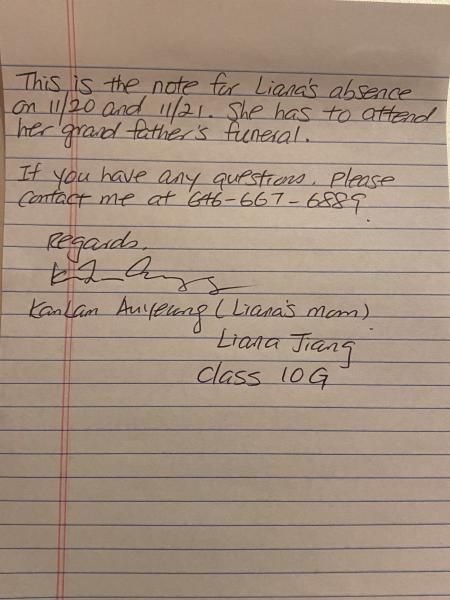 This is the note for Liana's absence
on 11/20 and 11/21. She has to attend
her grand father's funeral.
If you have any questions. Please
contact me at 646-667-6889.
Regards.
KanLam Auyeung (Liana's mom)
Liana Jiang
Class 10G